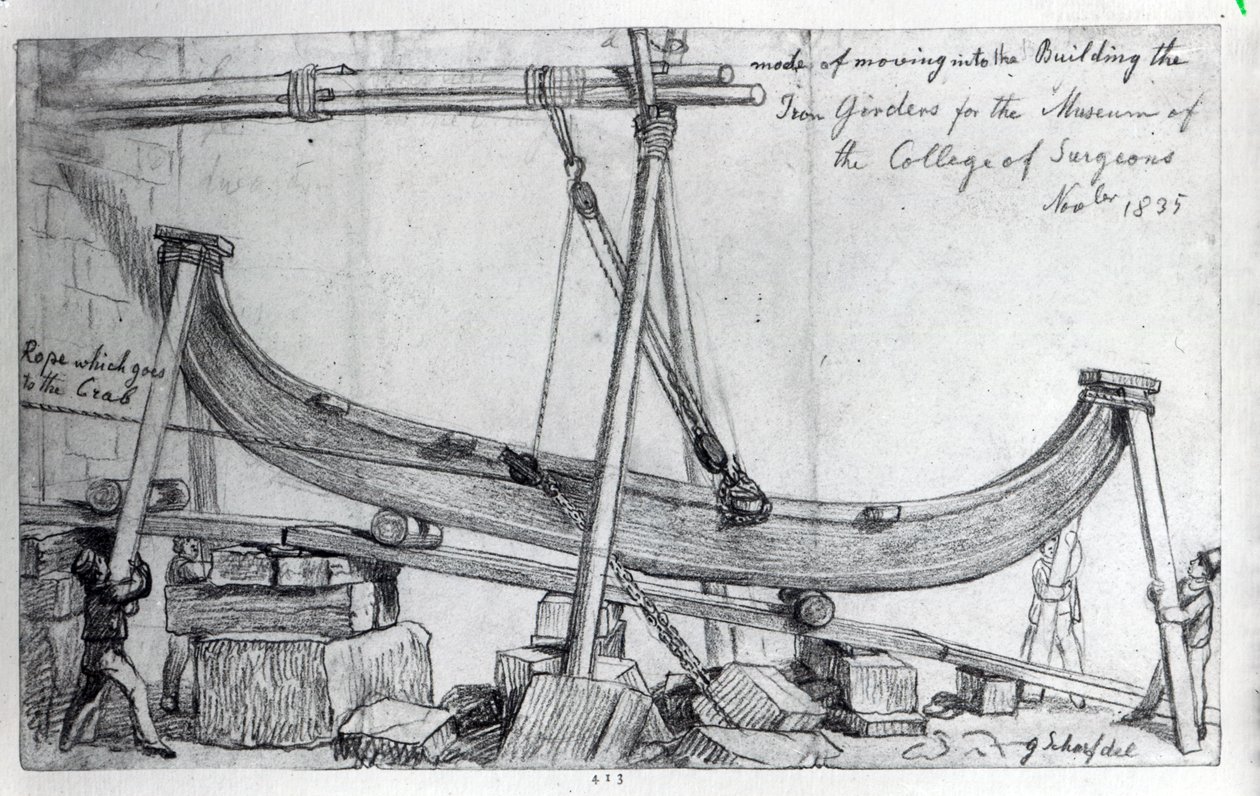 mode of moving into the Building the
Iron Girders for the Museum of
the College of Surgeons
Nov^ber 1835
Rope which goes
to the Crab
G Scharf del
413